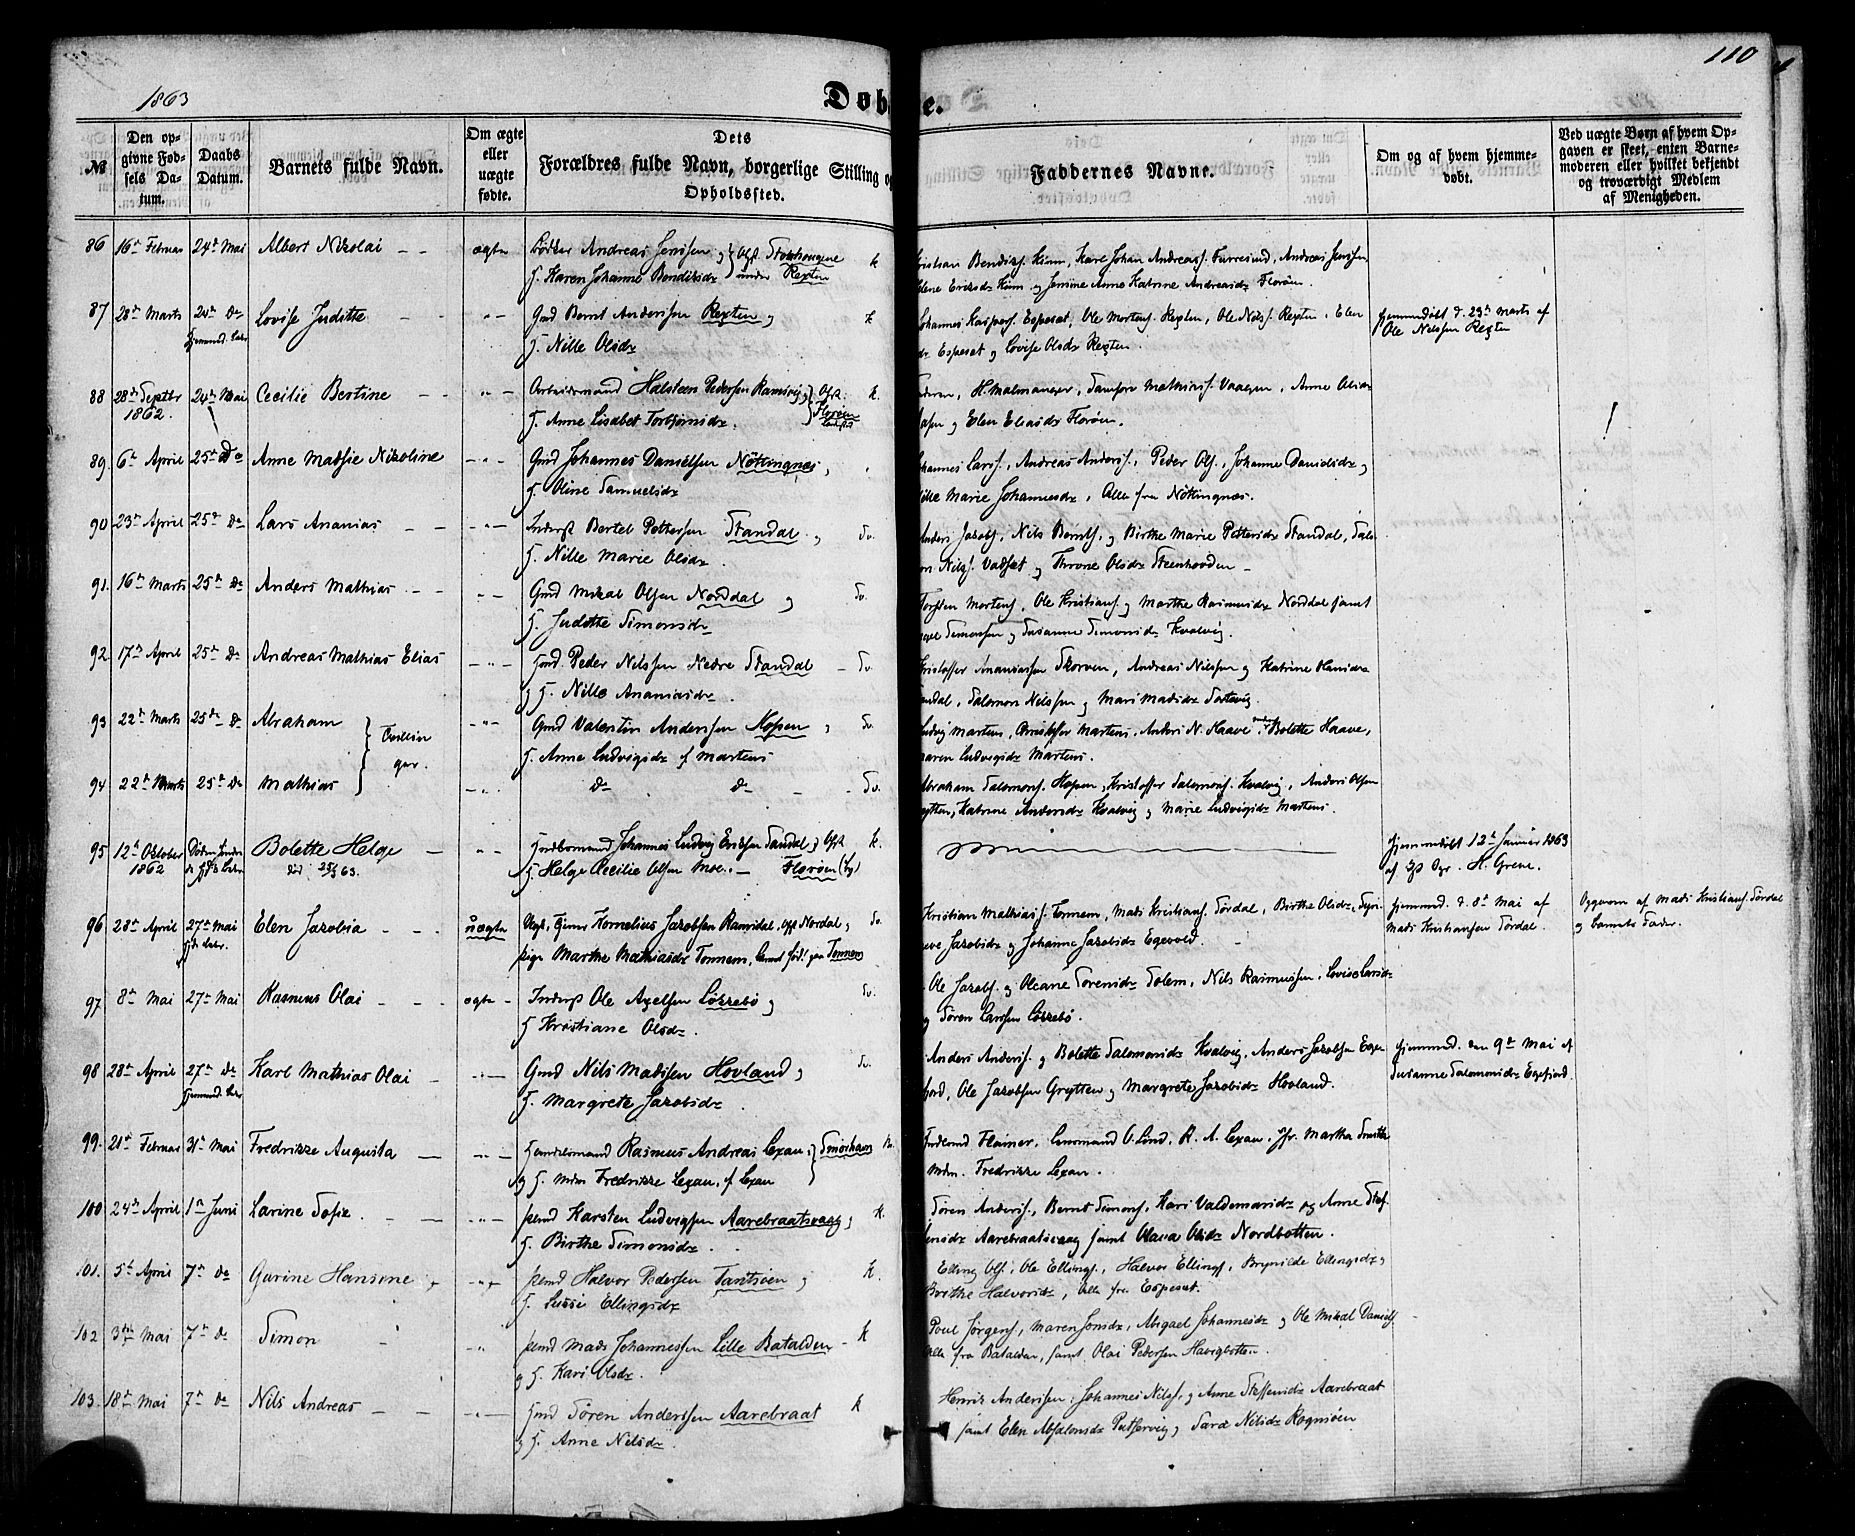 110
1863
Døbte.
№
Den opgivne Fødsels Datum.
Daabs Datum.
Barnets fulde Navn.
Om ægte eller uægte fødte.
Dets Forældres fulde Navn, borgerlige Stilling og Opholdssted.
Faddernes Navne.
Om og af hvem hjemmedøbt.
Ved uægte Børn af hvem Opgaven er skeet, enten Barnemoderen eller hvilket bekjendt og troværdigt Medlem af Menigheden.
86 16de Februar 24de Mai Albert Nikolai – – ægte Andreas Jenssen og Karen Johanne Bendiksdr under Rexten k
Bendiks. Kinn, Karl Johan Andreass. Furresund, Andreas Jenssen
Eriksdr Kinn og Jensine Anne Katrine Andreasdr Florøen.
87 28de Marts 24de Do Lovise Juditte – – Gmd Bernt Anderssen Rexten og k
H. Nille Olsdr
Johannes Kaspers. Espeset, Ole Mortens. Rexten, Ole Nilss. Rexten, Elen
Espeset og Lovise Olsdr Rexten.
hjemmedøbt d. 29de Marts af
Ole Nilssen Rexten
88 28de Septbr 1862. 24de Mai Cecilie Bertine – – Arbeidsmand Halsteen Pedersen Ramsvig, Opst. Florøen k.
H. Anne Lisabet Torbjørnsdr.
H. Malmanger, Mathias. Vaagen, Anne
og Elen Eliasdr Florøen.
89. 6te April 25de Do Anne Madsie Nikoline Gmd Johannes Danielsen Nøttingnæs,
H. Oline Samuelsdr
Johannes Larss., Andreas Anders., Peder Ols., Johanne Danielsdr og
Marie Johannesdr, Alle fra Nøttingnæs.
90 23de April 25de Do Lars Ananias – – Inderst Bertel Pettersen Standal og Do.
H. Nille Marie Olsdr.
Anders Jakobs., Nils Bernts. og Birthe Marie Pettersdr Standal,
Nilss. Vadset og Throne Olsdr Steenhovden –
91. 16de Marts 25de Do Anders Mathias – – Gmd Mikal Olsen Norddal og Do.
H. Juditte Simonsdr
Torsten Mortens., Ole Kristians. og Marthe Rasmusdr Norddal samt
Simonsen og Susanne Simonsdr Kvalvig.
92. 17de April 25de Do Andreas Mathias Elias Gmd. Peder Nilssen Nedre Standal – Do.
og H. Nille Ananiasdr.
Kristoffer Ananiassen Skorven, Andreas Nilssen og Katrine Hansdr
Salomon Nilssen og Mari Madsdr
93 22de Marts 25de Do Abraham } Tvillinger. Gmd Valentin Anderssen Hopen og Do
H. Anne Ludvigsdr f Martens
Ludvig Martens, Christoffer Martens, Anders N. Haave, Bolette Haave,
Maren Ludvigsdr Martens.
94 22de Marts 25de Do Mathias Do Do – Do.
Abraham Salomons. Hopen, Kristoffer Salomons. Kvalvig, Anders Olsen
Grytten, Katrine Andersdr Kvalvig og Marie Ludvigsdr Martens.
95 12te Oktober 1862 Bolette Helge – død 25/ 63. Johannes Ludvig Eriksen Sandal og Opst k.
H. Helge Cecilie Olsen Moe. – Florøen
hjemmedøbt 12te Januar 1863
af H. Greve.
96 28de April 27de Mai Elen Jakobia – – – uægte Kornelius Jakobsen Ramsdal, Opst Nordal, Do
pige Marthe Mathiasdr Tonnem, Tonnem
Kristian Mathiass. Tonnem, Mads Kristians. Sørdal, Birthe Olsdr,
Jakobsdr og Johanne Jakobsdr Egevold. –
hjemmed. d. 8de Mai af
Mads Kristiansen Sørdal.
Opgaven af Mads Kristians. Sørdal
og barnets Fader.
97 8de Mai 27de Mai Rasmus Olai – – – ægte – Inderst Ole Axelsen Løkkebø og Do.
H. Kristiane Olsdr
Ole Jakobs. og Oleane Sørensdr Solem, Nils Rasmussen, Lovise Larsdr
og Søren Larssen Løkkebø.
98 28de April 27de Do Karl Mathias Olai – Gmd Nils Madsen Hovland og Do.
H. Margrete Jakobsdr
Anders Anders. og Bolette Salomonsdr Kvalvig, Anders Jakobsen
Ole Jakobsen Grytten og Margrete Jakobsdr Hovland.
hjemmed. den 9de Mai af
Susanne Salomonsdr Egefjord.
99. 21de Februar 31te Mai Fredrikke Augusta – Handelsmand Rasmus Andreas Lexau, Smørhavn
og H. Mdm Fredrikke Lexau, f Lexau
Lensmand Lind, R. A. Lexau, Jfr. Martha
Mdm. Fredrikke Lexau.
100 24de April 1te Juni Larine Sofie. – – Karsten Ludvigsen Aarebraatsvaag, k.
H. Birthe Simonsdr.
Søren Anders., Bernt Simons., Kari Valdemarsdr og Anne
Aarebraatsvaag samt Olava Olsdr Nordbotten.
101. 5te April 7de Do Gurine Hansine Halvor Pedersen Tansøen og k.
H. Lussi Ellingsdr
Elling Ols., Ole Ellings., Halvor Ellings., Brynilde Ellingsdr,
Birthe Halvorsdr, Alle fra Espeset.
102 3die Mai 7de Do Simon – Mads Johannessen Lille Batalden – k
og H. Kari Olsdr.
Poul Jørgens., Maren Jonsdr, Abigael Johannesdr og Ole Mikal Daniels.
Alle fra Batalden, samt Olai Pedersen Havigbotten.
103. 18de Mai 7de Do Nils Andreas – – Gmd Søren Anderssen Aarebraat k
og H. Anne Nilsdr.
Henrik Anderssen, Johannes Nilss. og Anne Steffensdr Aarebraat
samt Elen Absalonsdr og Sara Nilsdr Rognsøen